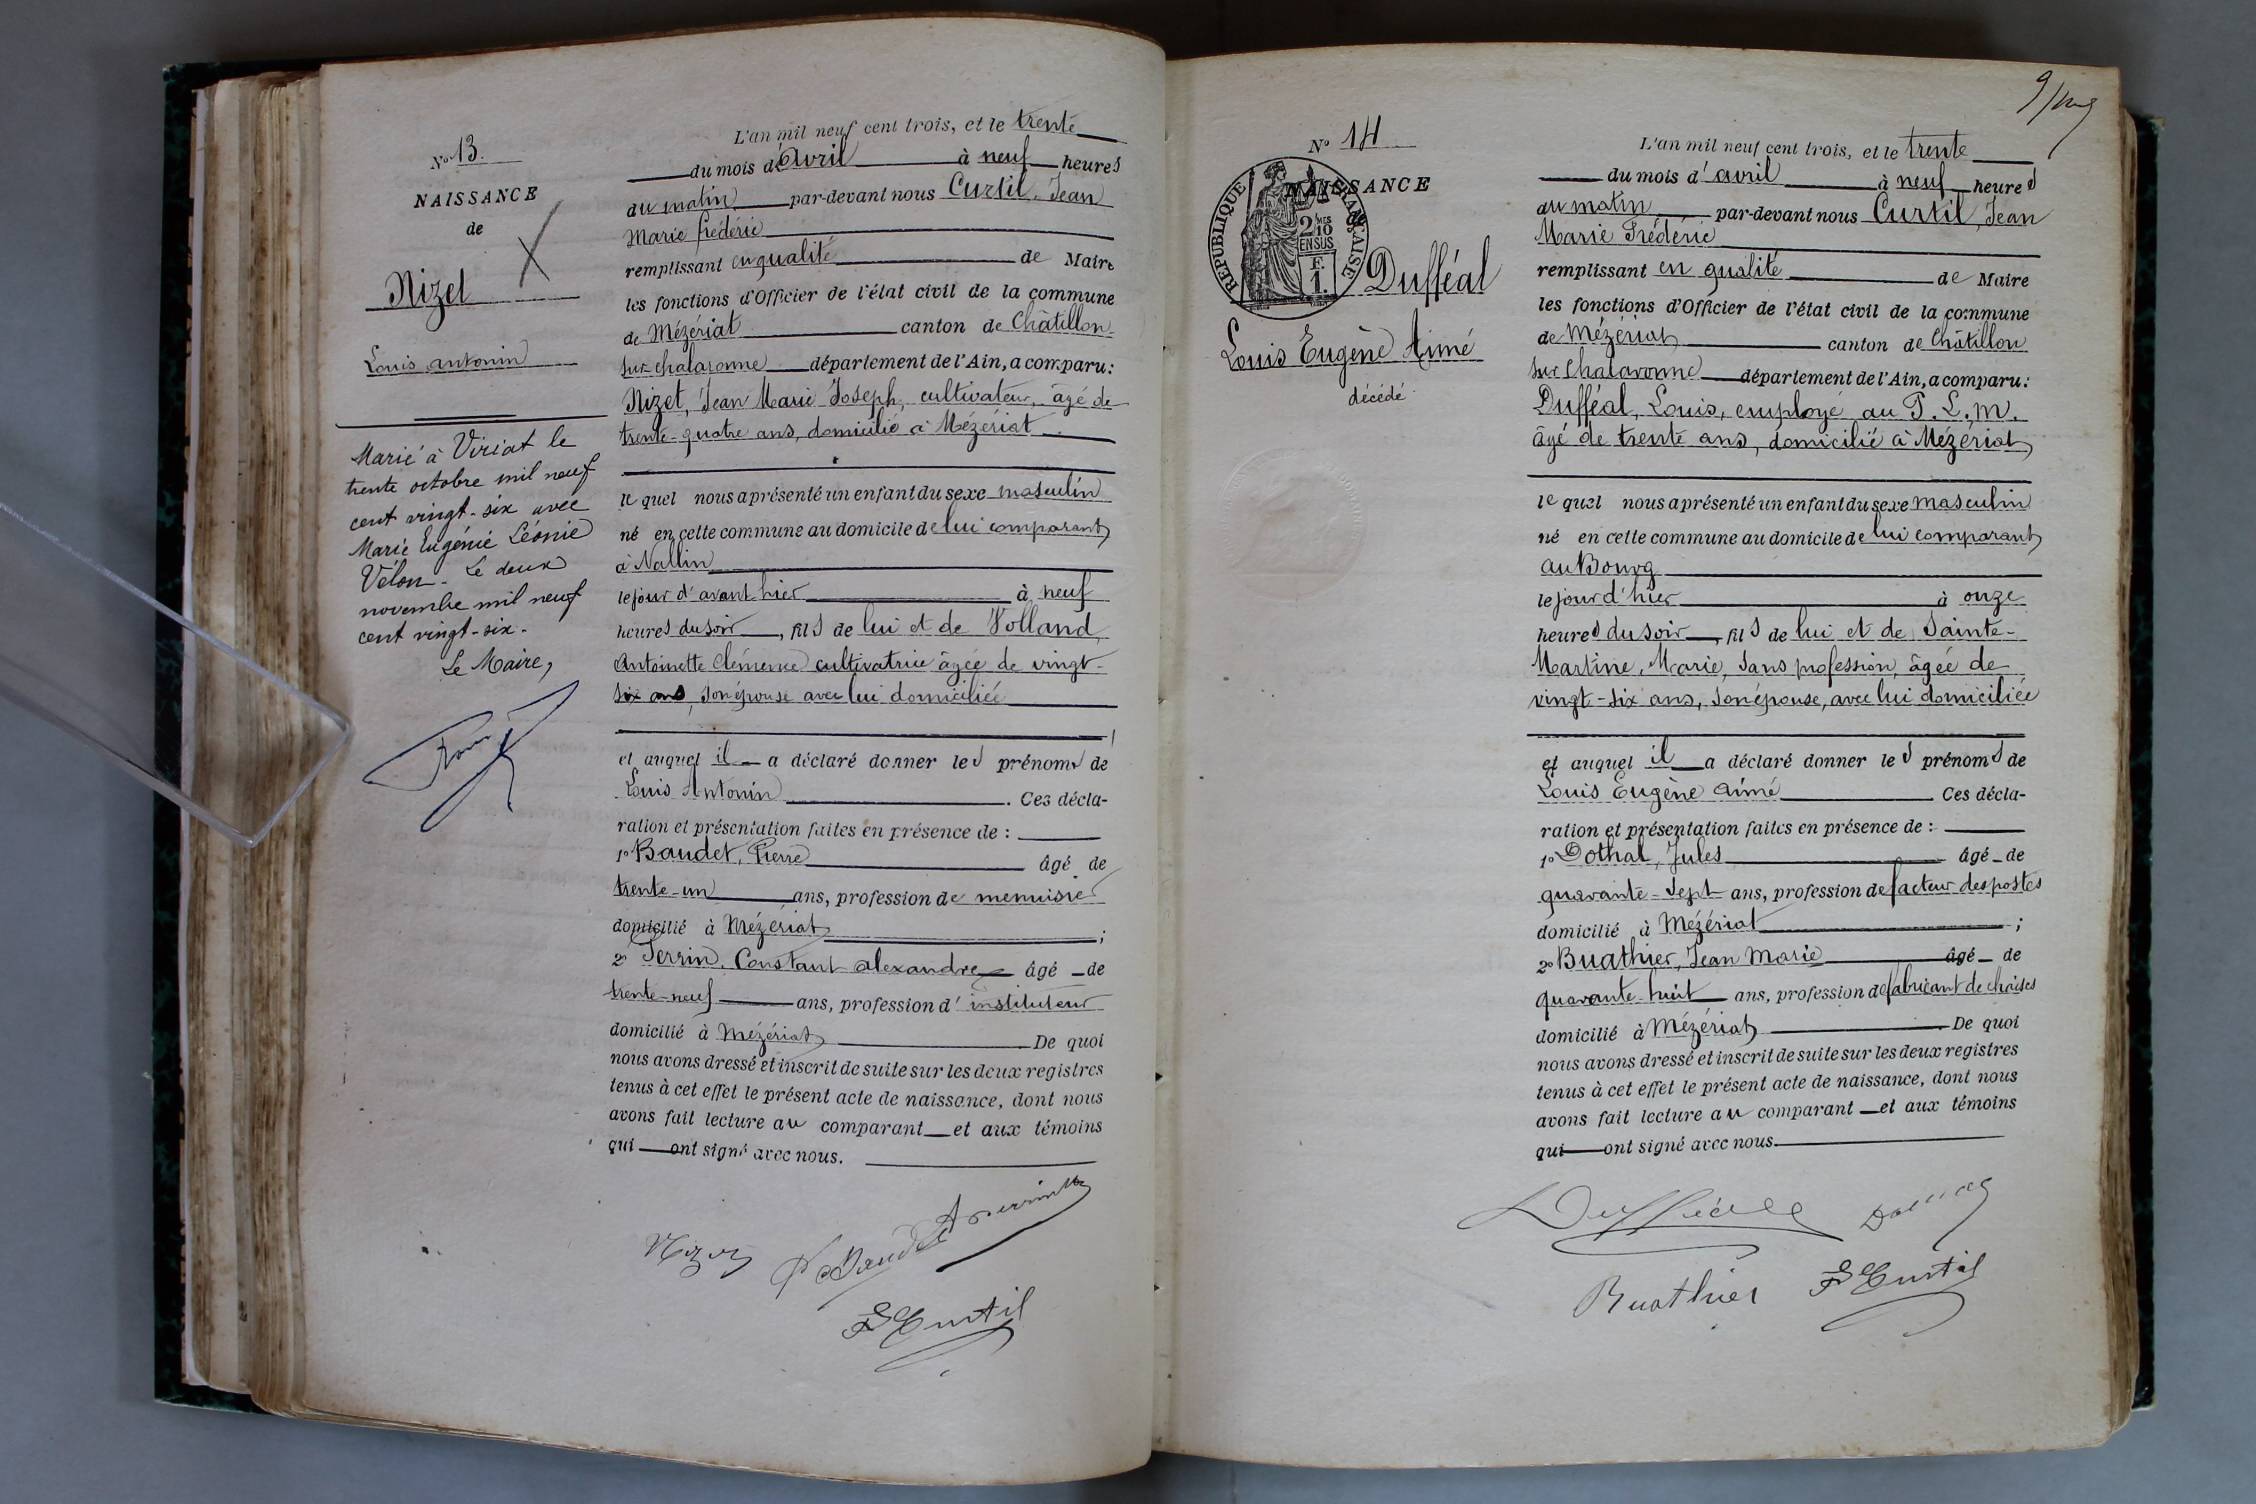 No 13.
NAISSANCE
de
Nizet
Louis Antonin
Marié à Viriat le
trente octobre mil neuf
cent vingt-six avec
Marie Eugénie Léonie
Vélon. Le deux
novembre mil neuf
cent vingt-six.
Le Maire,
L'an mil neuf cent trois, et le trente
du mois d'avril à neuf heures
du matin par-devant nous Curtil, Jean
Marie frédéric
remplissant en qualité de Maire
les fonctions d'Officier de l'état civil de la commune
de Mézériat canton de Châtillon
sur chalaronne département de l'Ain, a comparu:
Nizet, Jean Marie Joseph, cultivateur, âgé de
trente-quatre ans, domicilié à Mézériat
le quel nous a présenté un enfant du sexe masculin
né en cette commune au domicile de lui comparant
à Vallin
le jour d'avant hier à neuf
heures du soir, fils de lui et de Volland
Antoinette Clémence cultivatrice âgée de vingt-
six ans, son épouse avec lui domiciliée
et auquel il a déclaré donner les prénoms de
Louis Antonin. Ces décla-
ration et présentation faites en présence de :
1° Baudet, Pierre âgé de
trente-un ans, profession de menuisier
domicilié à Mézériat ;
2° Perrin, Constant alexandre âgé de
trente-neuf ans, profession d'instituteur
domicilié à Mézériat De quoi
nous avons dressé et inscrit de suite sur les deux registres
tenus à cet effet le présent acte de naissance, dont nous
avons fait lecture au comparant et aux témoins
qui ont signé avec nous.
Nizet P Baudet A Perrin
F Curtil
No 14
NAISSANCE
de
RÉPUBLIQUE FRANÇAISE
2/10
EN SUS
F.
1.
Dufféal
Louis Eugène Aimé
décédé
L'an mil neuf cent trois, et le trente
du mois d'avril à neuf heures
du matin par-devant nous Curtil, Jean
Marie Frédéric
remplissant en qualité de Maire
les fonctions d'Officier de l'état civil de la commune
de Mézériat canton de Châtillon
sur Chalaronne département de l'Ain, a comparu:
Dufféal, Louis, employé au P. L. M.
âgé de trente ans, domicilié à Mézériat
le quel nous a présenté un enfant du sexe masculin
né en cette commune au domicile de lui comparant
au Bourg
le jour d'hier à onze
heures du soir, fils de lui et de Sainte-
Martine, Marie, sans profession, âgée de
vingt-six ans, son épouse, avec lui domiciliée
et auquel il a déclaré donner les prénoms de
Louis Eugène aimé. Ces décla-
ration et présentation faites en présence de :
1° Dothal, Jules âgé de
quarante-sept ans, profession de facteur des postes
domicilié à Mézériat ;
2° Buathier, Jean Marie âgé de
quarante-huit ans, profession de fabricant de chaises
domicilié à Mézériat De quoi
nous avons dressé et inscrit de suite sur les deux registres
tenus à cet effet le présent acte de naissance, dont nous
avons fait lecture au comparant et aux témoins
qui ont signé avec nous.
Dufféal
Buathier F Curtil